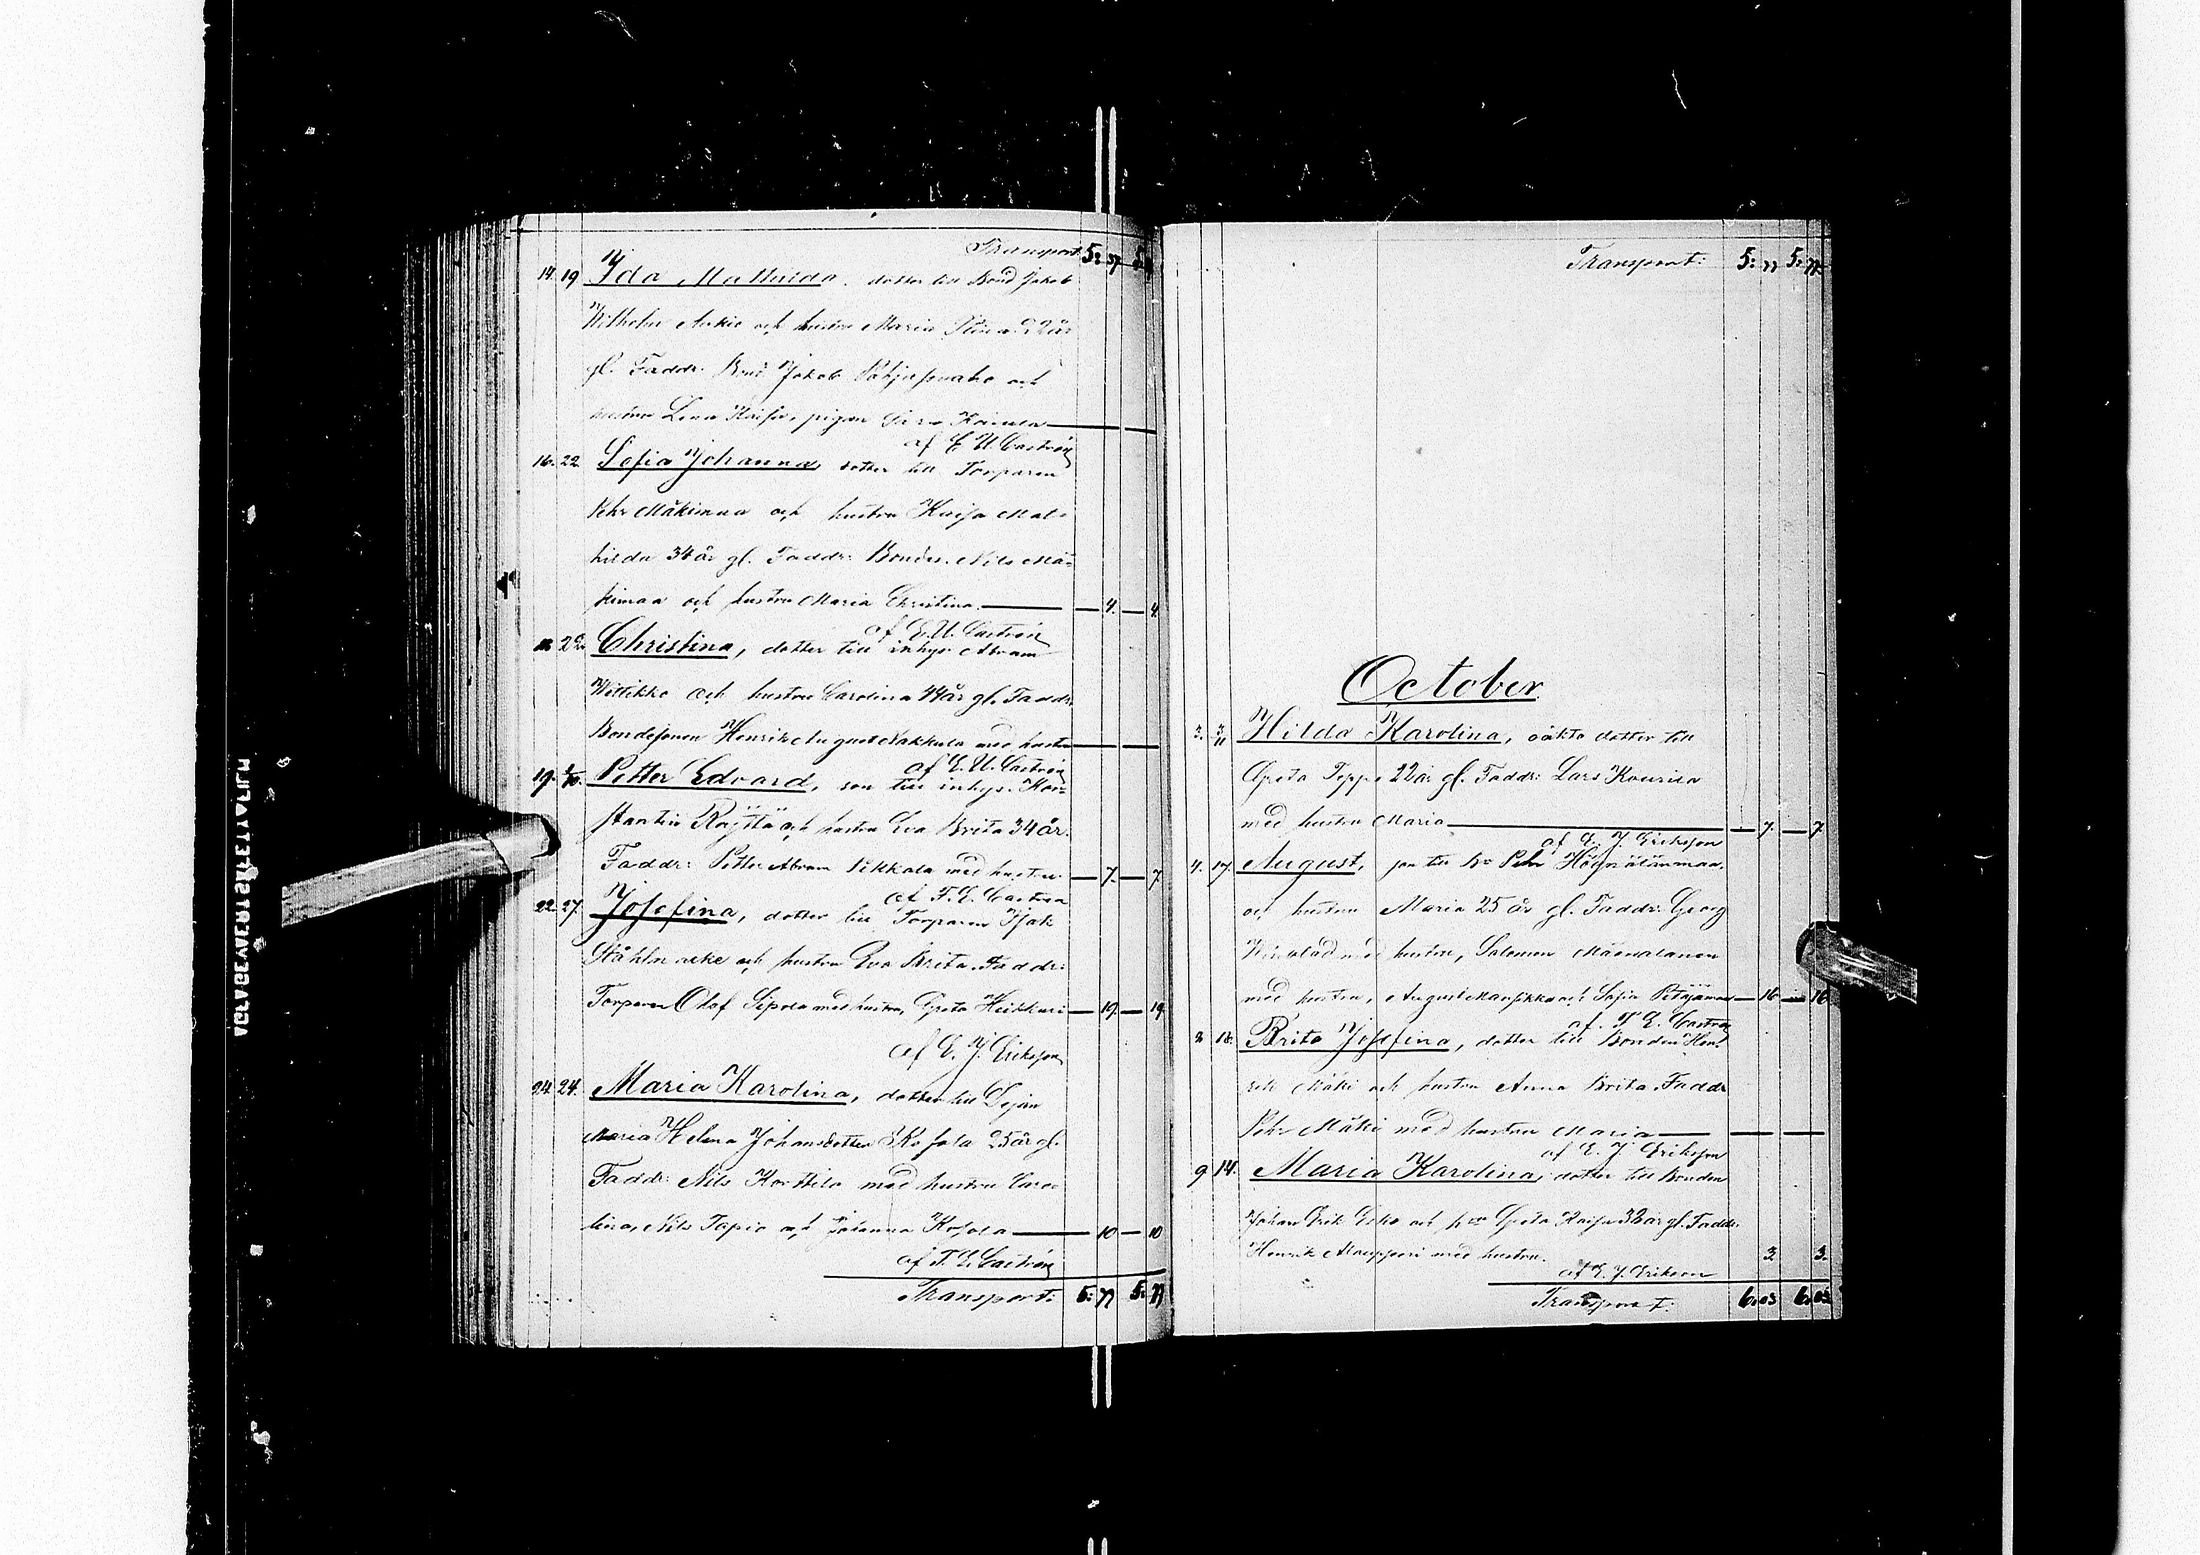 Transport 5: 37 5:
14. 19 Ida Mathilda, dotter till Bond Jakob
Wilhelm och hustru Maria Stina 22 år
gl. Faddr. Bond Jakob och
hustru Lena Kaisa, pigan
af E U Castrén
16. 22 Sofia Johanna, dotter till Torparen
Pehr Mäkimaa och hustru Kaisa Mat-
hilda 34 år gl. Faddr. Bonden Nils Mä-
kimaa och hustru Maria Christina. — 4. — 4
af E. U. Castrén
22. Christina, dotter till inhys. Abram
Wittikko och hustru Carolina 44 år gl. Faddr.
Bondesonen Henrik August Nakkula med hustru
af E. U. Castrén
19. 2/10. Petter Edvard, son till inhys. Kon-
stantin Röyttä och hustru Eva Brita 34 år.
Faddr: Petter Abram Pekkala med hustru — 7. — 7
af F. E. Castrén
22. 27. Josefina, dotter till Torparen Isak
och hustru Eva Brita. Faddr:
Torparen Olof Sipola med hustru, Greta Heikkuri — 19. — 19
af E. J. Erikson
24. 24. Maria Karolina, dotter till Pejan
Maria Helena Johansdotter Kosola 25 år gl.
Faddr. Nils Korttila med hustru Caro-
lina, Nils Tapio och Johanna Kosola — 10 — 10
af F. E. Castrén
Transport: 5: 77 5: 77
Transport: 5: 77 5: 77
October
2. 3/11 Hilda Karolina, oäkta dotter till
Greta Teppo 22 år gl. Faddr: Lars Kourila
med hustru Maria — 7. — 7
af E. J. Erikson
4. 17. August, son till Bn Pehr
och hustru Maria 25 år gl. Faddr. Georg
med hustru, Salomon
med hustru, August Mansikka och Sofia Petäjämaa — 16 — 16
af F. E. Castrén
3 18. Brita Josefina, dotter till Bonden Hen-
rik Mäki och hustru Anna Brita. Faddr
Pehr Mäki med hustru Maria
af E. J. Erikson
9 14. Maria Karolina, dotter till Bonden
Johan Erik Esko och hru Greta Kaisa 32 år gl. Faddr.
Henrik Alaupperi med hustru. 3. 3.
af E. J. Erikson
Transport: 6: 03 6: 03